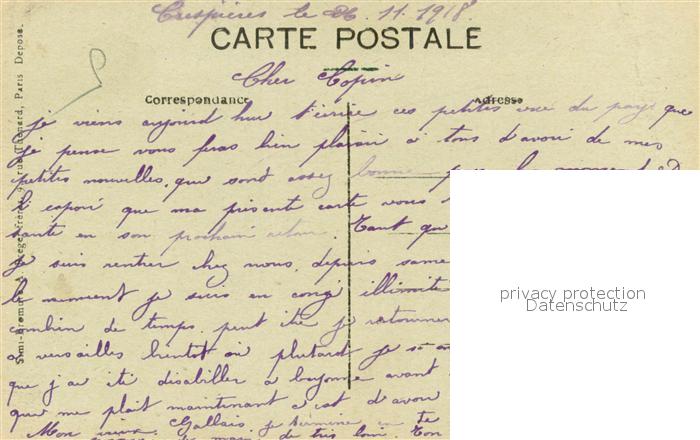 Crespières le 26.11.1918.
CARTE POSTALE
Cher Copin
Correspondance
Adresse
je viens aujourd hui t'écrire ces petites vue du pays que
je pense vous feras bien plaisir à tous d'avoir de mes
petites nouvelles, que sont assez bonne
espoir que ma présente carte vous
santé en son prochain retour. Tant qu
je suis rentrer chez nous, depuis same
le moment je suis en congé illimité
combien de temps, peut être je retourner
a versailles bientot ou plutard je
que j'ai été disabiller a bayonne avant
que me plait maintenant c'est d'avoir
Mon vieux Gallais, je termine en te
de très loin. Ton
privacy protection
Datenschutz
Paris Déposé.